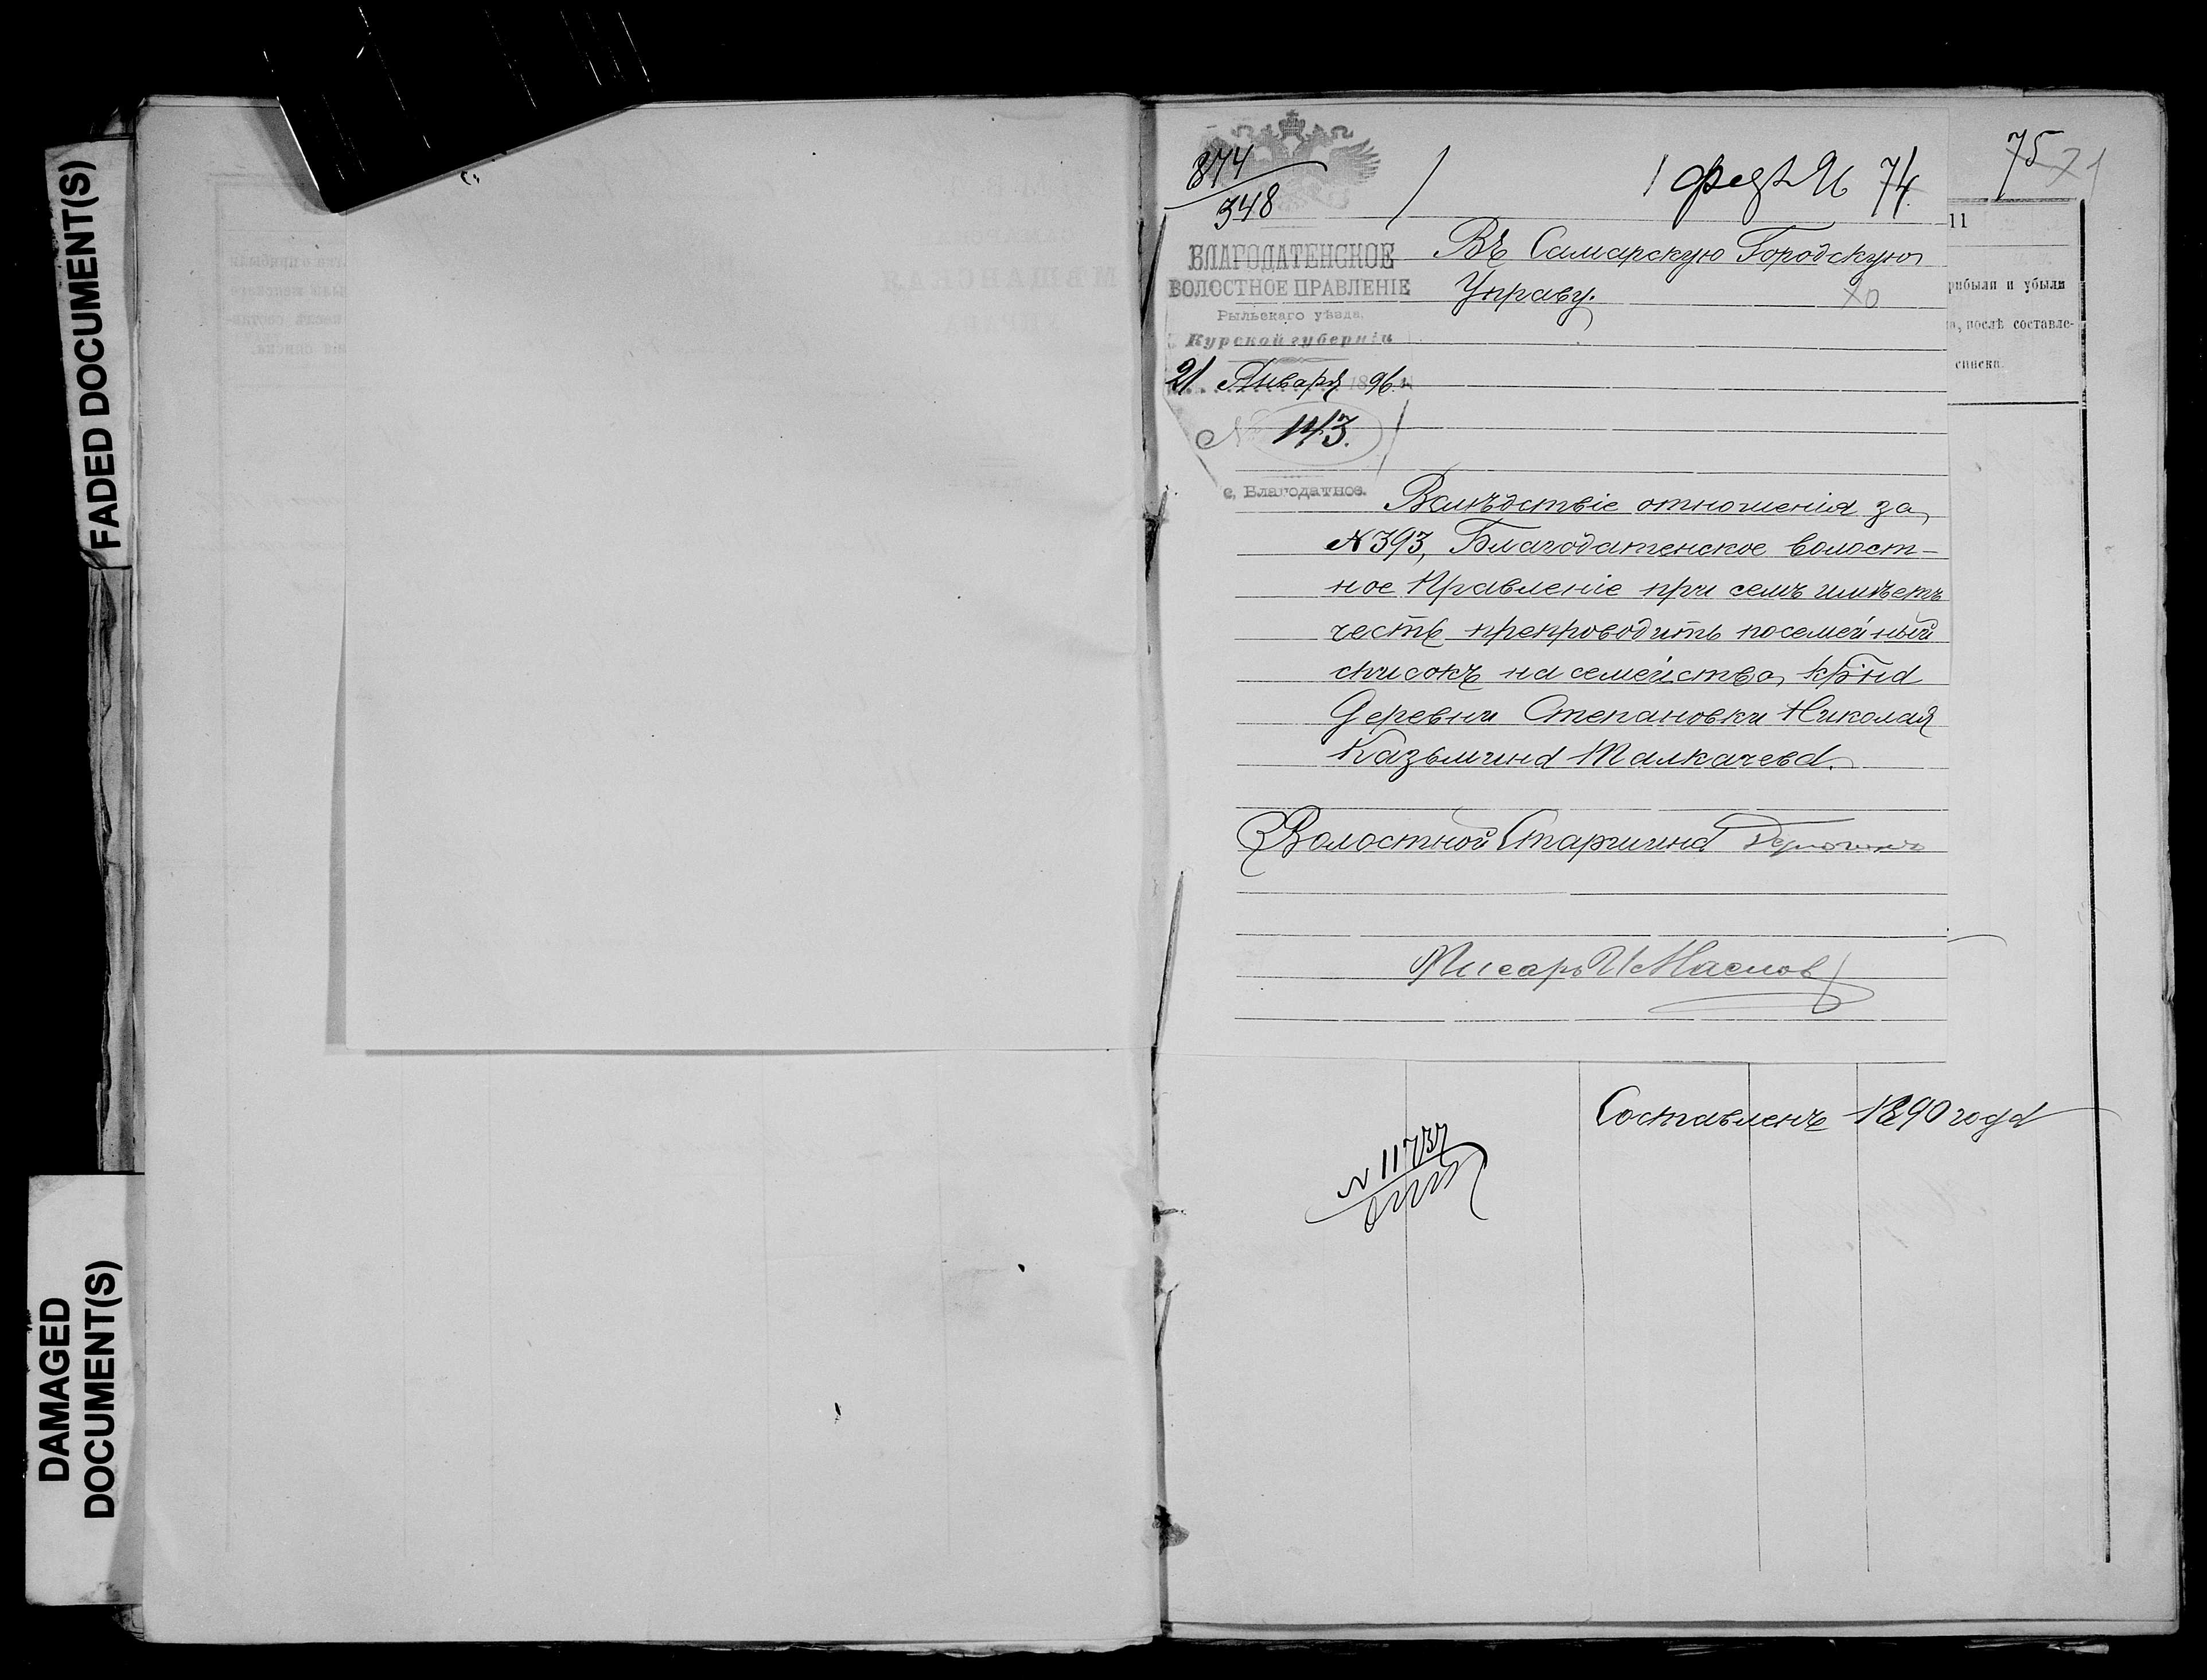 FADED DOCUMENT(S)
DAMAGED
DOCUMENT(S)
874
348
1 фев 96
74
75
71
БЛАГОДАТЕНСКОЕ
ВОЛОСТНОЕ ПРАВЛЕНІЕ
Рыльскаго уѣзда,
Курской губерніи
21 Января 1896 г.
№ 143.
с. Благодатное.
Въ Самарскую Городскую
Управу.
70
11
рибыли и убыли
а, послѣ составле-
списка.
Вслѣдствіе отношенія за
№ 393, Благодатенское волост-
ное Правленіе при семъ имѣетъ
честь препроводить посемейный
списокъ на семейства кр-на
Деревни Степановки Николая
Казьмина Талкачева.
Волостной Старшина
Писарь И Маслов
Составленъ 1890 года
№ 11737